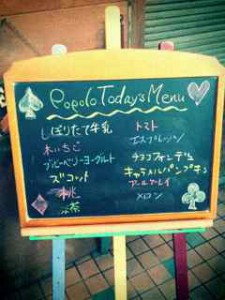 Popolo Today's Menu
しぼりたて牛乳
木いちご
ブルーベリーヨーグルト
ズコット
桃
茶
トマト
エスプレッソ
チョコフォンデュ
キャラメルパンプキン
アールグレイ
メロン